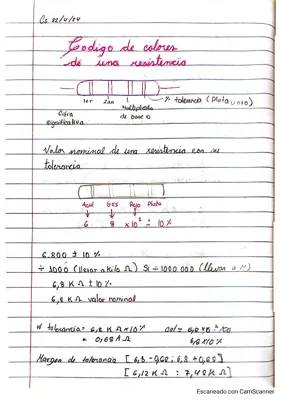 Cs 22/4/24
Codigo de colores
de una resistencia
1er 2da Multiplicador % tolerancia (Plata u oro)
Cifra de base 10
significativa
Valor nominal de una resistencia con su
tolerancia
Azul Gris Rojo Plata
6 8 x10² ± 10%
6.800 ± 10%
÷ 1000 (llevar a kilo Ω) Si ÷ 1000 000 (lleva a M)
6,8 K Ω ± 10%
6,8 K Ω valor nominal
tolerancia = 6,8 K Ω x 10%
= 0,68 K Ω
Margen de tolerancia [6,8 - 0,68 ; 6,8 + 0,68]
[6,12 K Ω ; 7,48 K Ω]
Escaneado con CamScanner